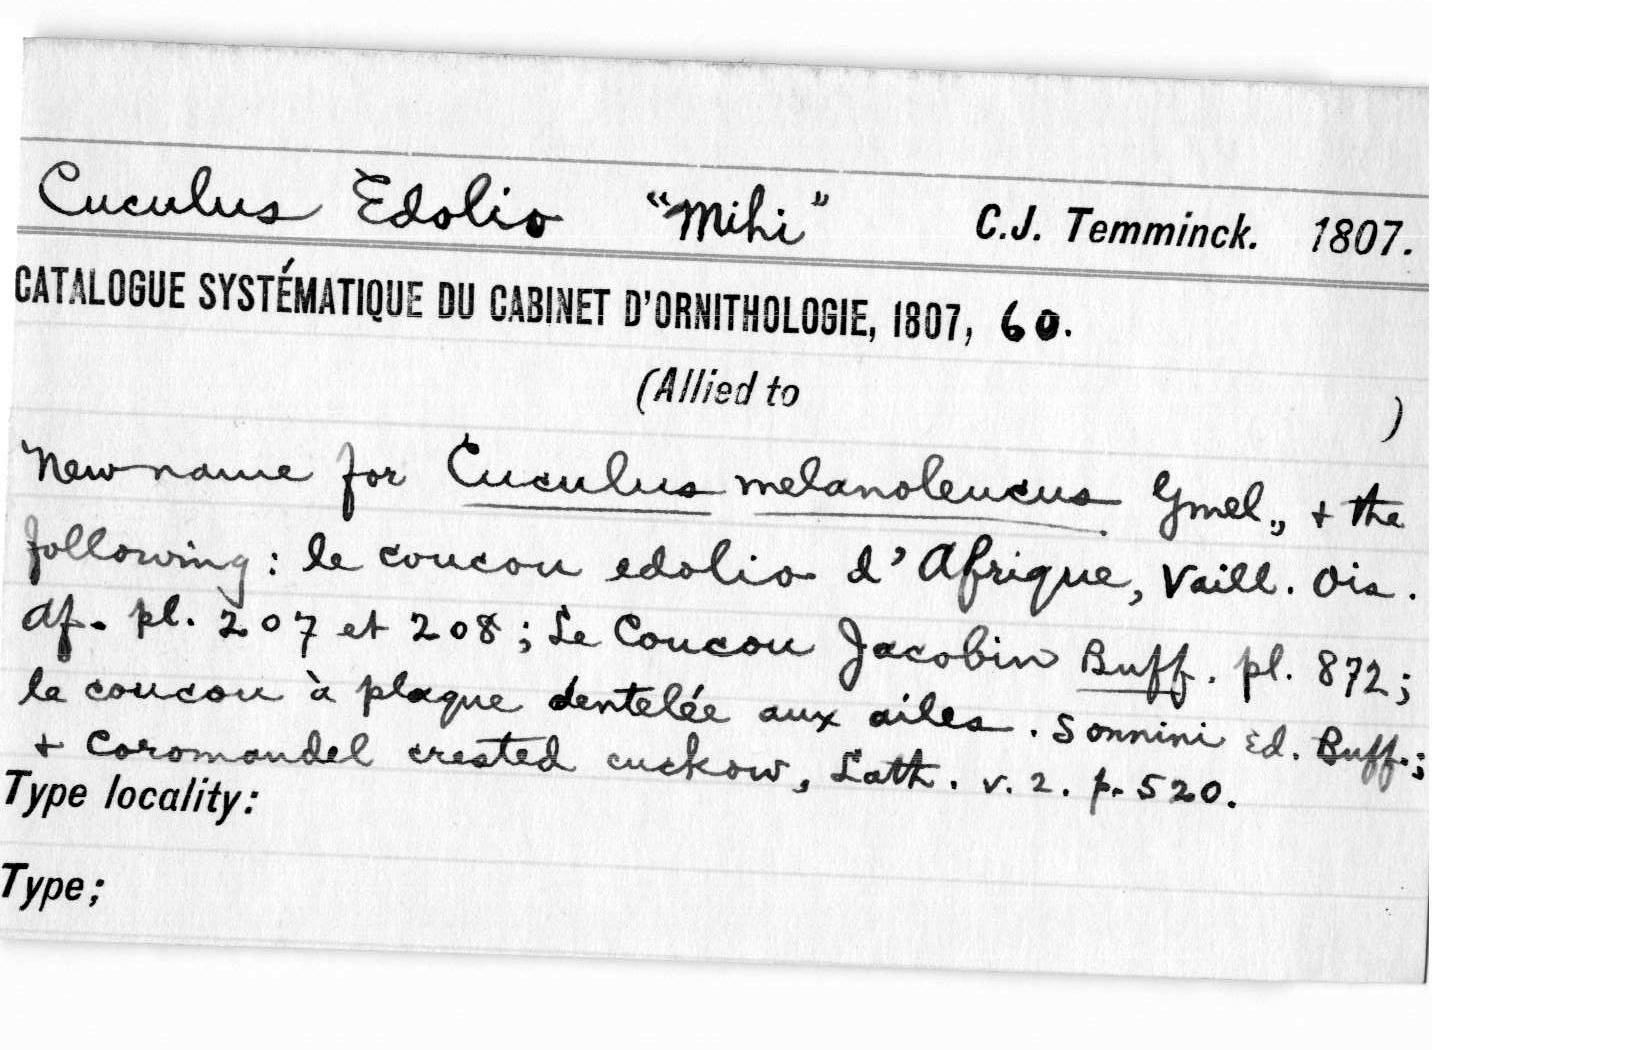 Cuculus Edolio "Mihi" C.J. Temminck. 1807.
CATALOGUE SYSTÉMATIQUE DU CABINET D'ORNITHOLOGIE, 1807, 60.
(Allied to )
New name for Cuculus melanoleucus Gmel., + the
following: le coucou edolio d'Afrique, Vaill. Ois.
Af. pl. 207 et 208; Le Coucou Jacobin Buff. pl. 872;
le coucou à plaque dentelée aux ailes. Sonnini Ed. Buff.;
+ Coromandel crested cuckow, Lath. v. 2. p. 520.
Type locality:
Type;